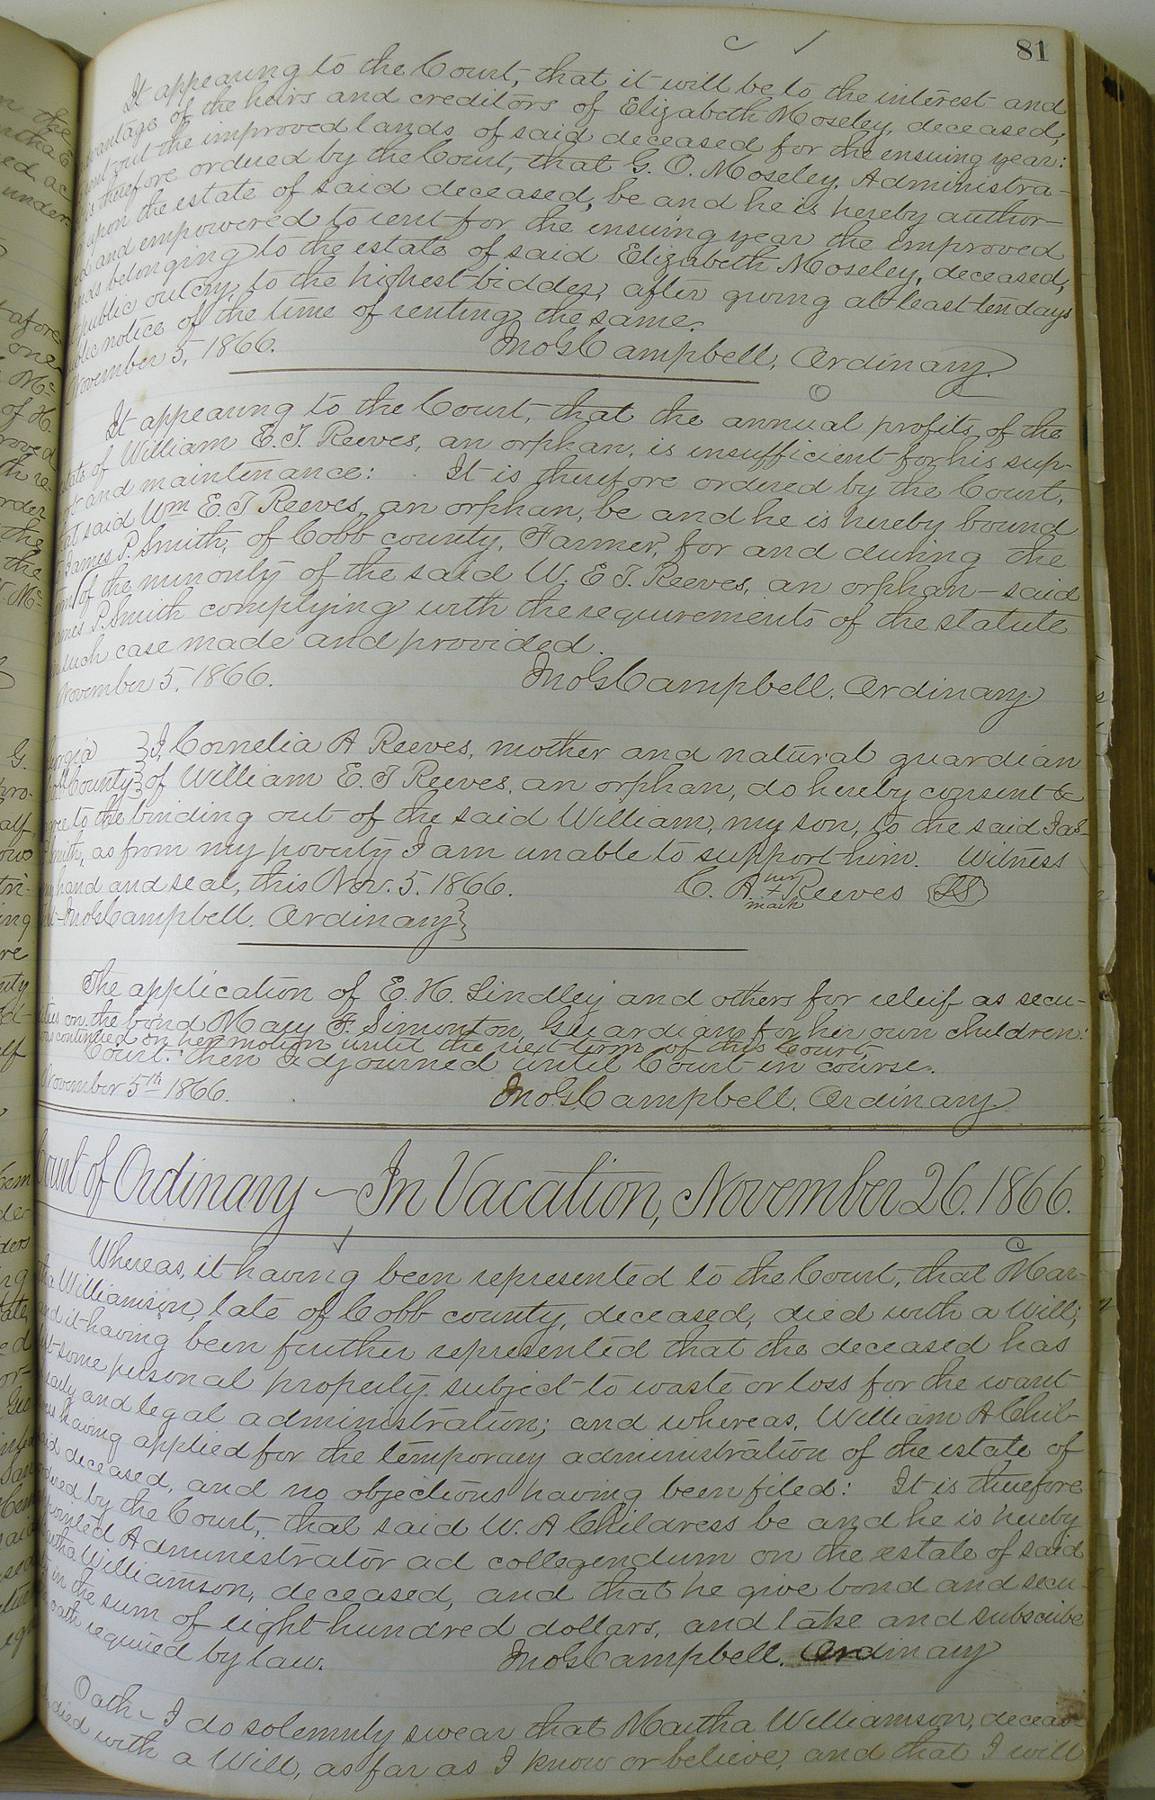 81
It appearing to the Court, that it will be to the interest and
vantage of the heirs and creditors of Elizabeth Moseley, deceased,
rent out the improved lands of said deceased for the ensuing year:
is therefore ordered by the Court, that G. O. Moseley, Administra-
upon the estate of said deceased, be and he is hereby author-
ed and empowered to rent for the ensuing year the improved
nds belonging to the estate of said Elizabeth Moseley, deceased,
public outcry, to the highest bidder, after giving at least ten days
blic notice of the time of renting the same.
November 5, 1866. Jno G Campbell, Ordinary.
It appearing to the Court, that the annual profits of the
state of William E. T. Reeves, an orphan, is insufficient for his sup-
rt and maintenance: It is therefore ordered by the Court,
at said Wm E. T Reeves, an orphan, be and he is hereby bound
James P. Smith, of Cobb county, Farmer, for and during the
term of the minority of the said W. E T. Reeves, an orphan - said
James P. Smith complying with the requirements of the statute
such case made and provided.
November 5, 1866. Jno G Campbell, Ordinary
rgia } I, Cornelia A Reeves, mother and natural guardian
County } of William E. T Reeves, an orphan, do hereby consent &
ree to the binding out of the said William, my son, to the said Jas
Smith, as from my poverty I am unable to support him. Witness
my hand and seal, this Nov. 5. 1866. C. A her + mark Reeves LS
Jno G Campbell. Ordinary }
The application of E. H. Lindley and others for releif as secu-
ities on the bond Mary F. Simonton Guardian for her own children:
continued on her motion until the next term of this Court.
Court then adjourned until Court in course.
November 5th 1866. Jno G Campbell. Ordinary
Court of Ordinary - In Vacation, November 26. 1866.
Whereas, it having been represented to the Court, that Mar-
tha Williamson, late of Cobb county, deceased, died with a Will;
and it having been further represented that the deceased has
left some personal property subject to waste or loss for the want
early and legal administration; and whereas, William A Chil-
ess having applied for the temporary administration of the estate of
said deceased, and no objections having been filed: It is therefore
ordered by the Court, that said W. A Childress be and he is hereby
appointed Administrator ad collegendum on the estate of said
Martha Williamson, deceased, and that he give bond and secu-
in the sum of eight hundred dollars, and take and subscribe
oath required by law. Jno G Campbell. Ordinary
Oath - I do solemnly swear that Martha Williamson, deceas-
died with a Will, as far as I know or believe, and that I will